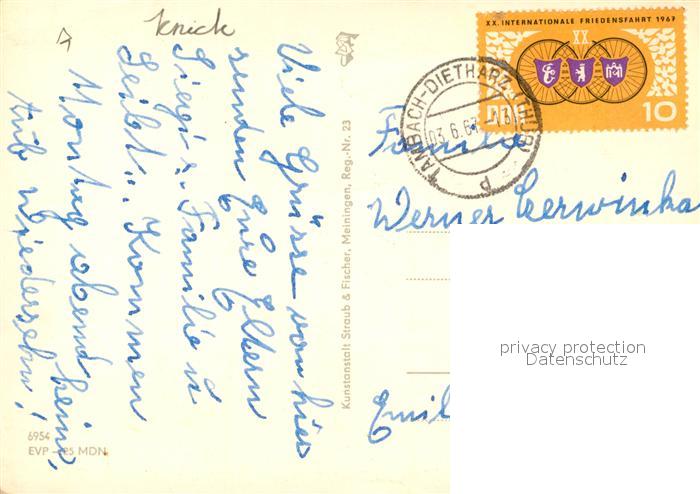 knick
XX. INTERNATIONALE FRIEDENSFAHRT 1967
XX
DDR
10
TAMBACH-DIETHARZ (THÜR)
03.6.67
Viele Grüsse von hier
senden Eure Eltern
Siegi u. Familie u
Leibl". Kommen
Montag abend heim,
Aub Wiedersehn!
Familie
Werner Czerwinka
Emil
Kunstanstalt Straub & Fischer, Meiningen, Reg.-Nr. 23
6954
EVP -,25 MDN
privacy protection
Datenschutz